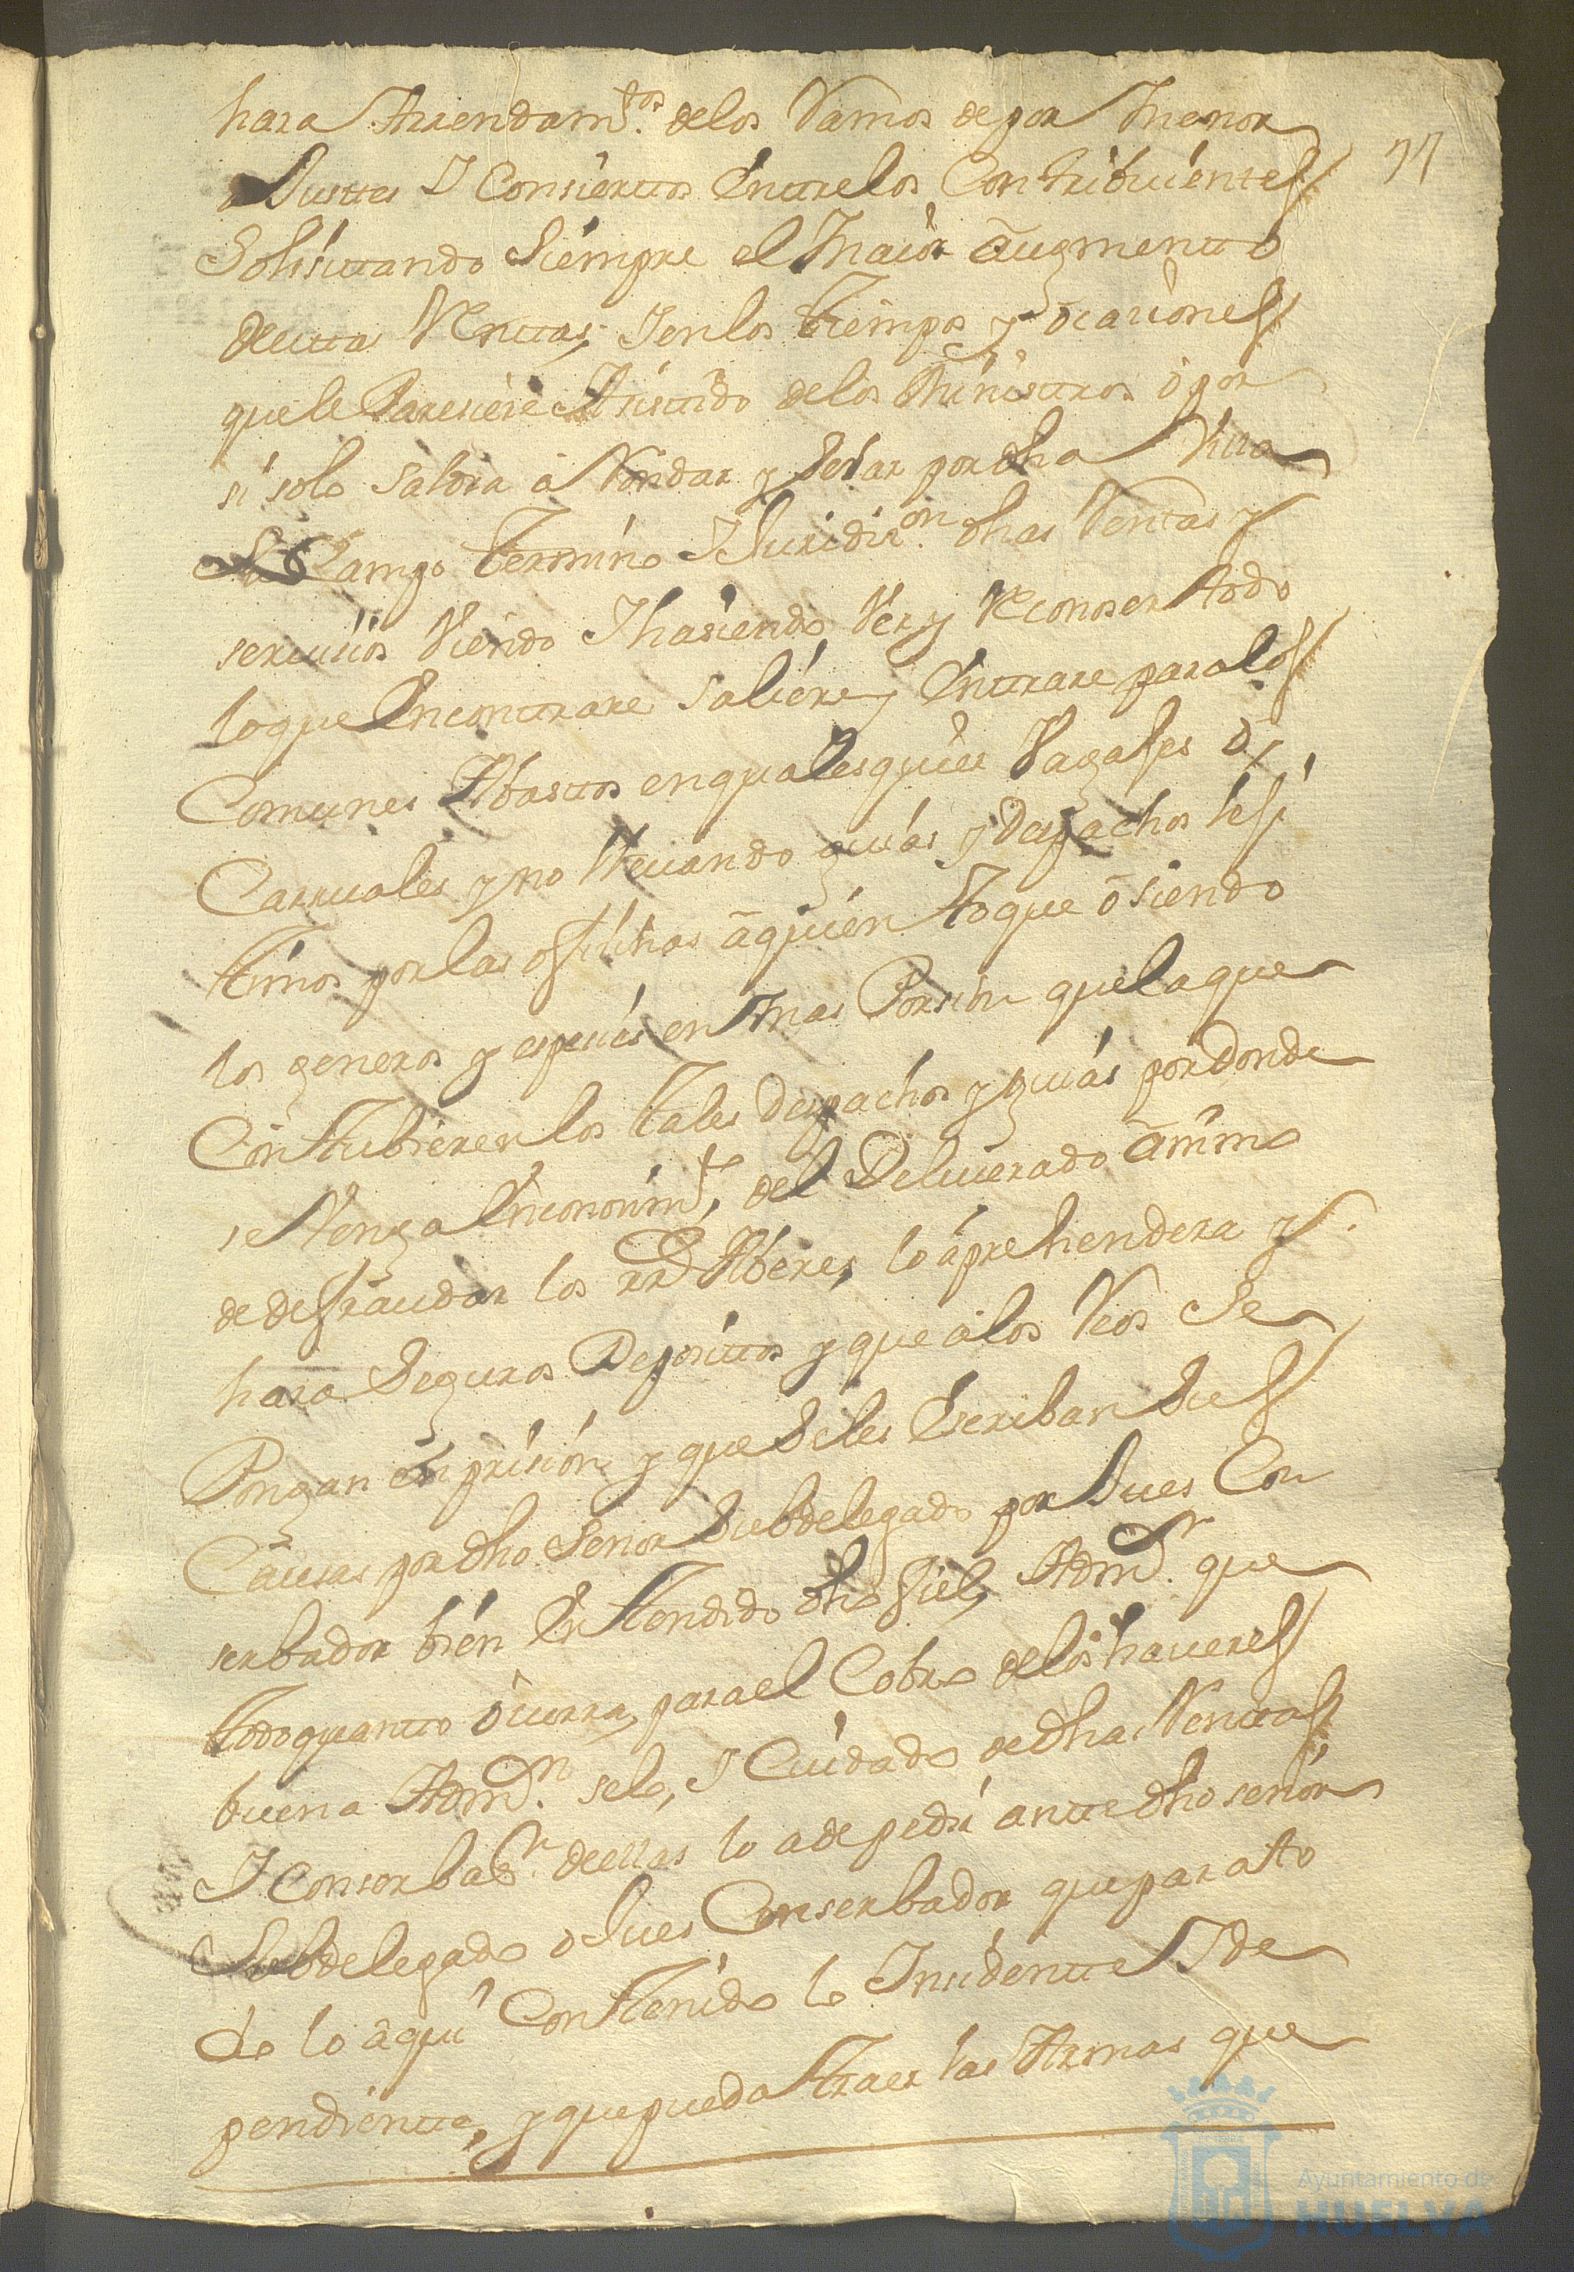 hara Arrendam.tos de los Ramos de por menor
77
aJustes Y Consiertos Entre los Contribuientes
Solisitando Siempre el maior augmento
de esta Rentas, Y en los tiempos y ocaciones
que le Paresiere Asistido de los Ministros ó por
si solo saldra á Rondar y Selar por dha Villa
Su Campo termino Y Juridic.on dhas Rentas y
serbisios Viendo Y hasiendo Ver y Reconoser todo
lo que Encontrare saliere y Entrare para los
Comunes Abastos en qualesquier Vagajes ó
Carruajes y no llevando guias y Despachos lexi
timos por las ofisinas aquien toque ó siendo
los generos y especies en mas Porsion que la que
Contubieren los tales Despachos y guias por donde
se Venga En conosim.to, del Deliverado animo
de defraudar los rr.s Aberes, lo aprehendera y
hara Seguros Depositos y que á los Reos Se
Pongan en prision y que Se les Escriban Sus
Causas por dho Señor Subdelegado por Jues Con
serbador bien Entendido dho fiel, Adm.r que
todo quanto ocurra, para el Cobro de los haveres
buena Adm.n selo, Y Cuidado de dhas Rentas
Y Conserbas.n de ellas lo a de pedir ante dho señor
Subdelegado o Jues Conserbador que para to
do lo aqui Contenido lo Insidente Y de
pendiente, y que pueda traer las Armas que
Ayuntamiento de
HUELVA